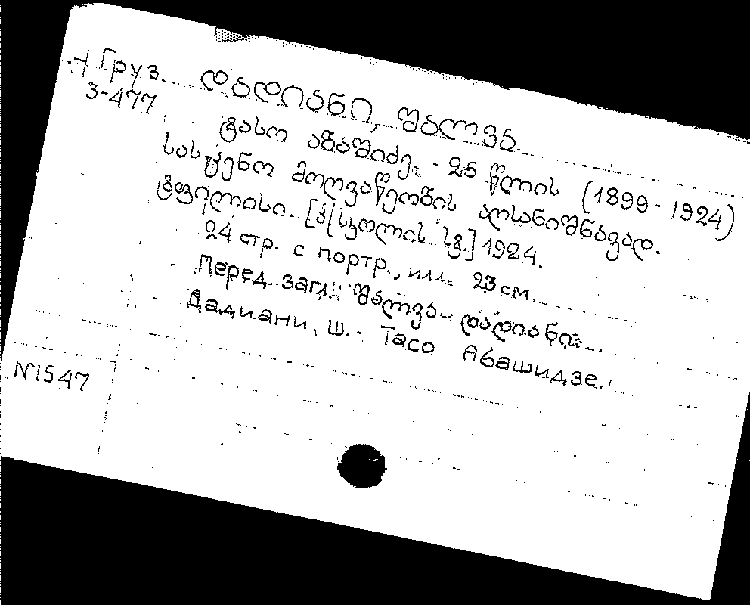 Груз. დადიანი, შალვა
3-477
ტასო აბაშიძე. - 25 წლის (1899-1924)
სასცენო მოღვაწეობის აღსანიშნავად.
ტფილისი. სტ.] 1924.
24 стр. с портр., илл. 23 см.
Перед загл: შალვა დადიანი.
Дадиани, Ш. Тасо Абашидзе.
N1547